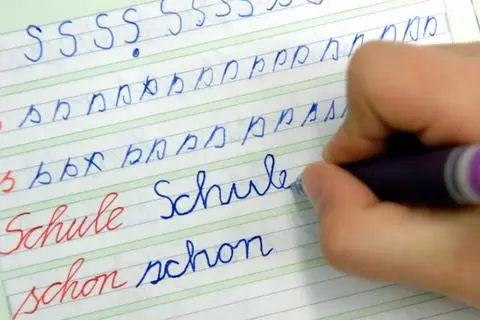 S S S S S S S S S
s s s s s s s s s s s s s s s s
s s s s s s s s s s s s s
Schule Schule
schon schon